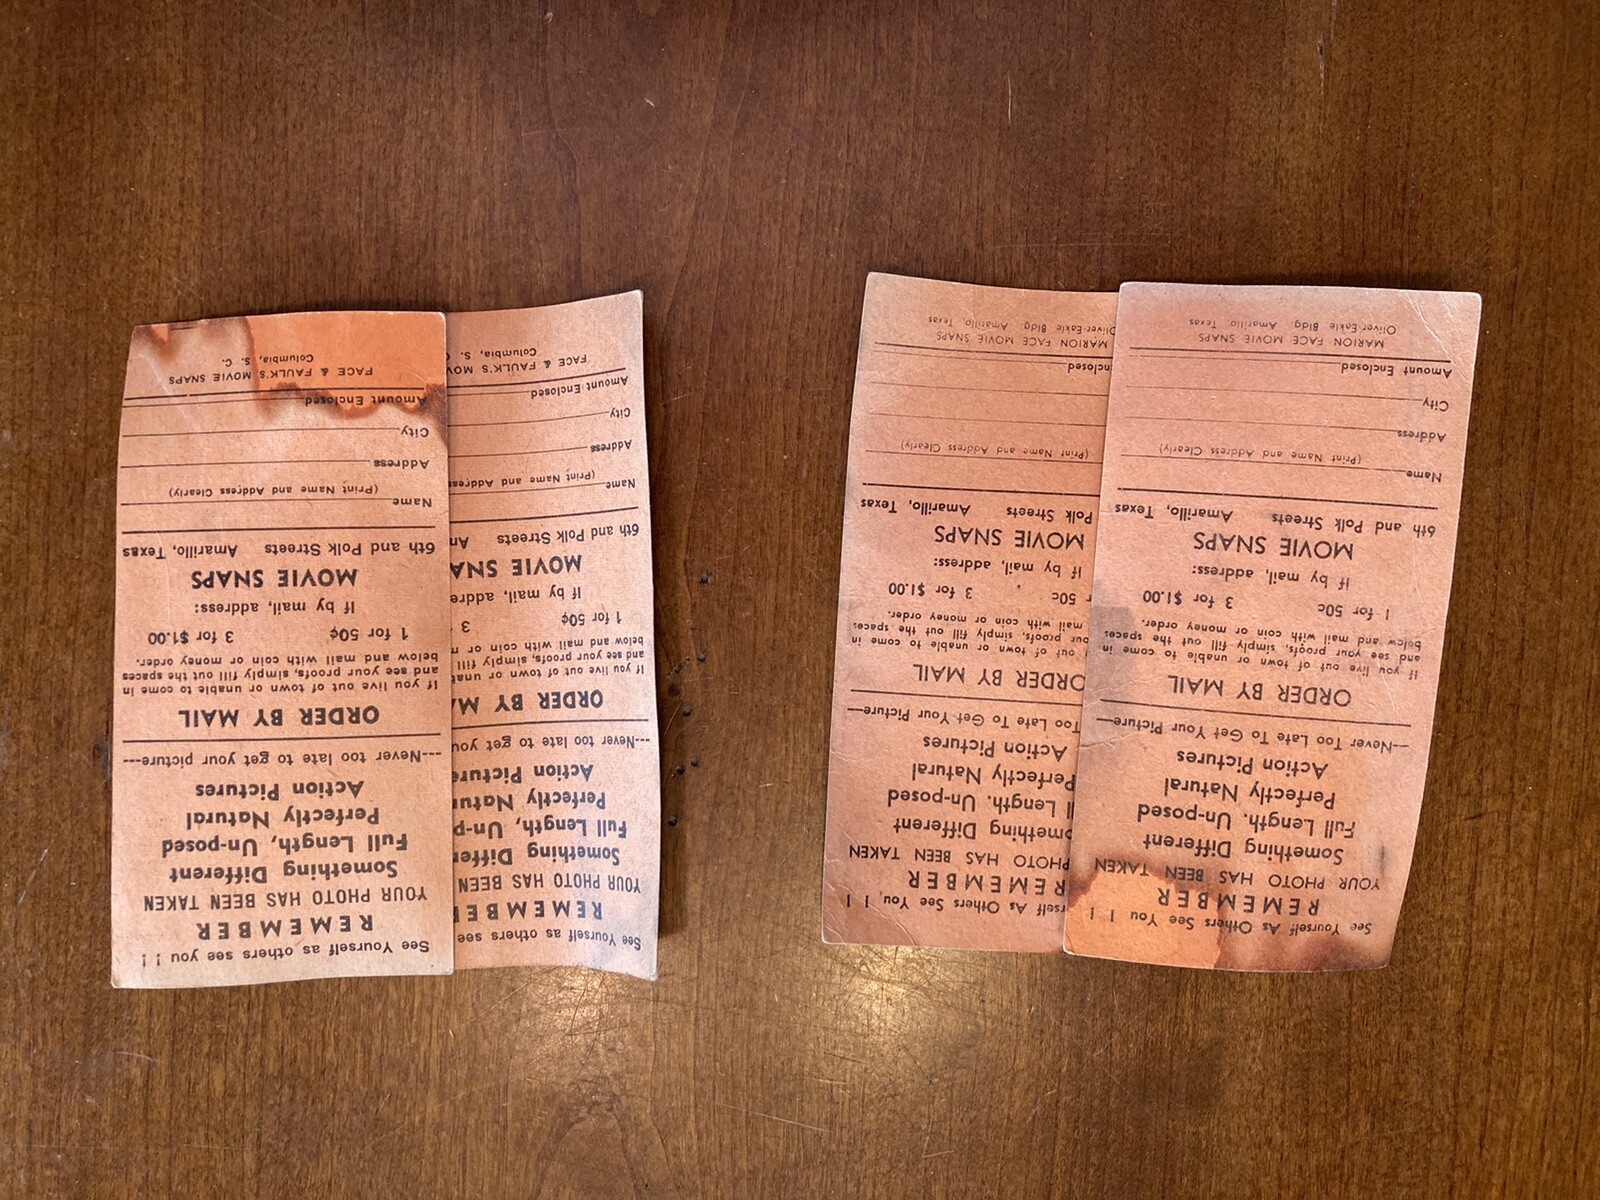 See Yourself as others see you ! !
REMEMBER
YOUR PHOTO HAS BEEN TAKEN
Something Different
Full Length, Un-posed
Perfectly Natural
Action Pictures
---Never too late to get your picture---
ORDER BY MAIL
If you live out of town or unable to come in
and see your proofs, simply fill out the spaces
below and mail with coin or money order.
1 for 50¢ 3 for $1.00
If by mail, address:
MOVIE SNAPS
6th and Polk Streets Amarillo, Texas
Name
(Print Name and Address Clearly)
Address
City
Amount Enclosed
FACE & FAULK'S MOVIE SNAPS
Columbia, S. C.
See Yourself as others see
REMEMBE
YOUR PHOTO HAS BEEN
Something Differ
Full Length, Un-p
Perfectly Natur
Action Picture
---Never too late to get you
ORDER BY MA
If you live out of town or unat
and see your proofs, simply fill
below and mail with coin or m
1 for 50¢ 3
If by mail, addre
MOVIE SNA
6th and Polk Streets An
Name
(Print Name and Address
Address
City
Amount Enclosed
FACE & FAULK'S MOVIE SNAPS
Columbia, S. C
See Yourself As Others See You ! !
REMEMBER
YOUR PHOTO HAS BEEN TAKEN
Something Different
Full Length. Un-posed
Perfectly Natural
Action Pictures
—Never Too Late To Get Your Picture—
ORDER BY MAIL
If you live out of town or unable to come in
and see your proofs, simply fill out the spaces
below and mail with coin or money order.
1 for 50c 3 for $1.00
If by mail, address:
MOVIE SNAPS
6th and Polk Streets Amarillo, Texas
Name
(Print Name and Address Clearly)
Address
City
Amount Enclosed
MARION FACE MOVIE SNAPS
Oliver-Eakle Bldg. Amarillo, Texas
rself As Others See You, ! !
REMEMBER
PHOTO HAS BEEN TAKEN
omething Different
l Length. Un-posed
Perfectly Natural
Action Pictures
Too Late To Get Your Picture—
ORDER BY MAIL
out of town or unable to come in
our proofs, simply fill out the spaces
mail with coin or money order.
r 50c 3 for $1.00
If by mail, address:
MOVIE SNAPS
Polk Streets Amarillo, Texas
(Print Name and Address Clearly)
nclosed
MARION FACE MOVIE SNAPS
Oliver-Eakle Bldg. Amarillo, Texas